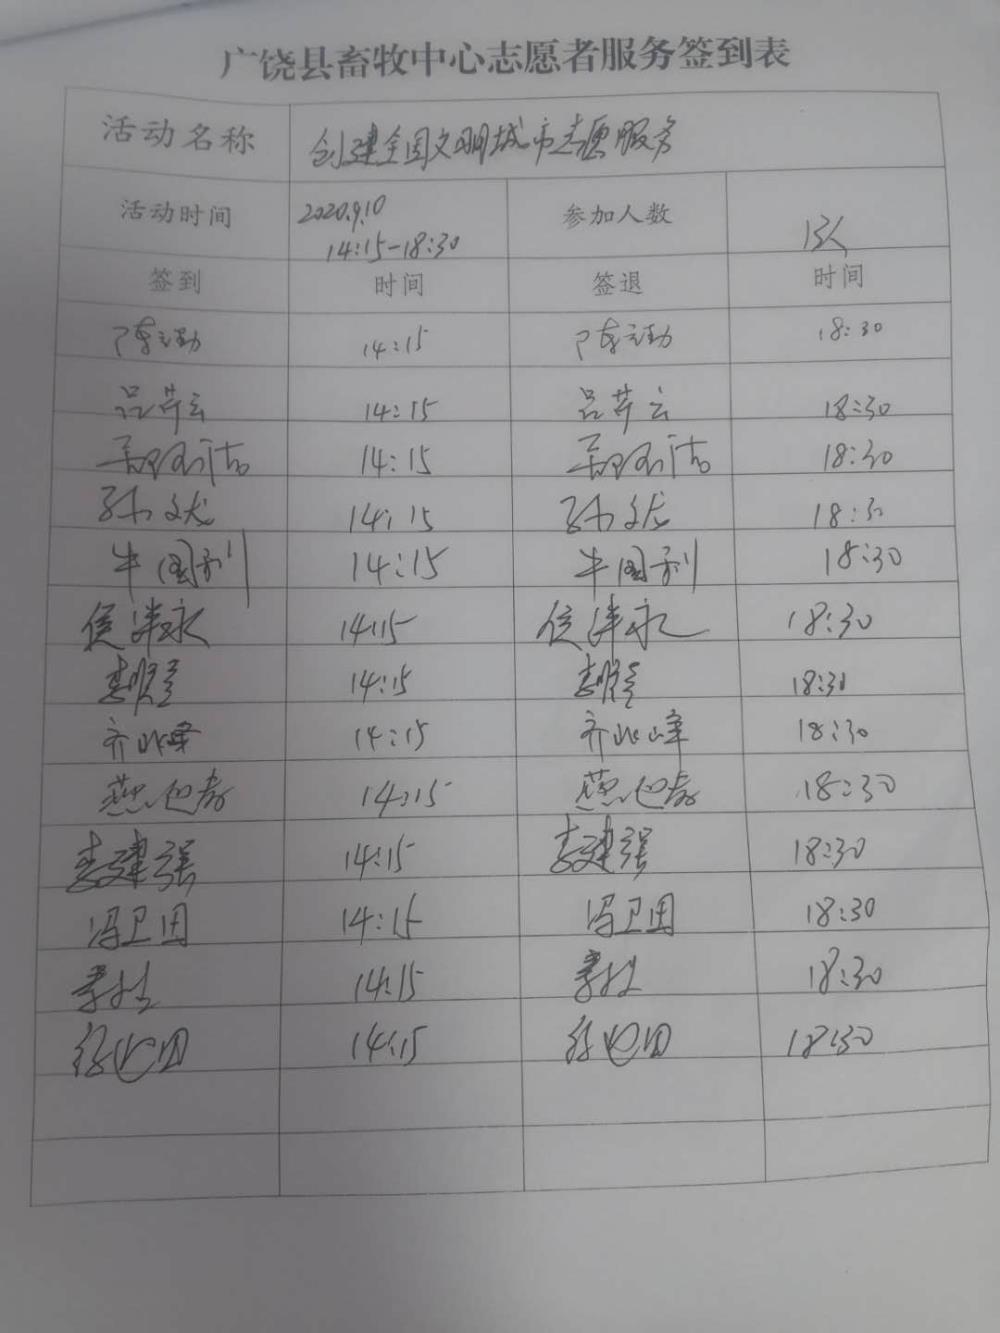 广饶县畜牧中心志愿者服务签到表
活动名称 创建全国文明城市志愿服务
活动时间 2020.9.10 14:15-18:30 参加人数 13人
签到 时间 签退 时间
陈立勤 14:15 陈立勤 18:30
吕芹云 14:15 吕芹云 18:30
14:15 18:30
孙文龙 14:15 孙文龙 18:30
牛国利 14:15 牛国利 18:30
侯泮永 14:15 侯泮永 18:30
14:15 18:30
齐兆峰 14:15 齐兆峰 18:30
14:15 18:30
李建强 14:15 李建强 18:30
冯卫田 14:15 冯卫田 18:30
14:15 18:30
14:15 18:30